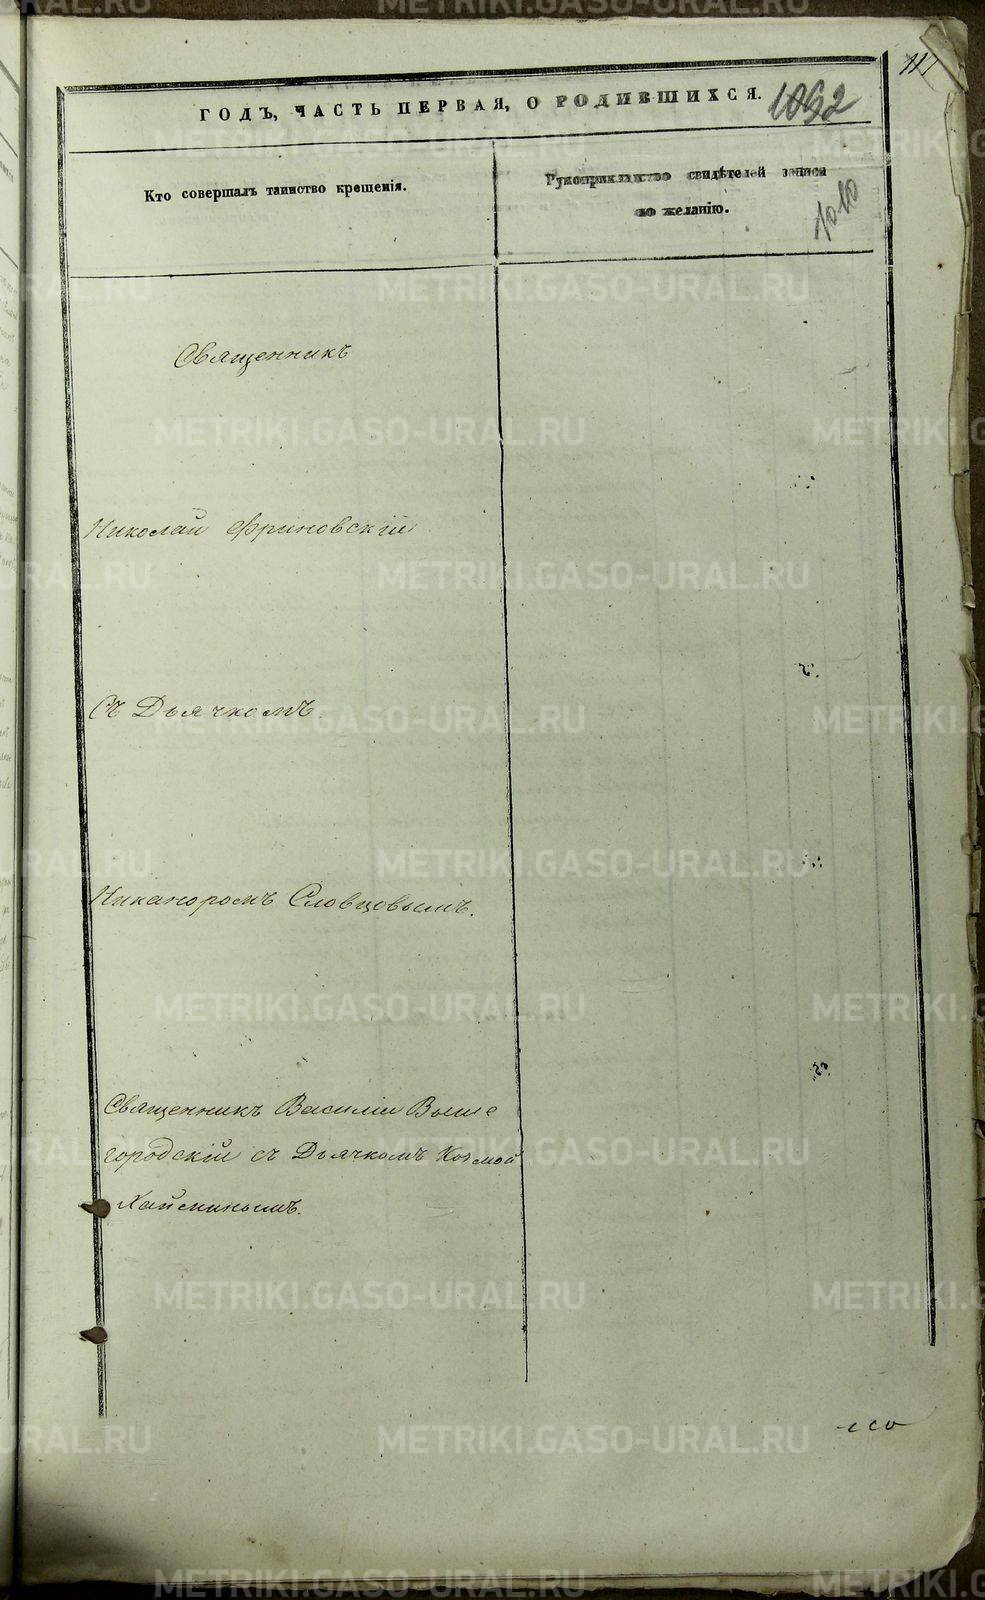 117
ГОДЪ, ЧАСТЬ ПЕРВАЯ, О РОДИВШИХСЯ.
Кто совершалъ таинство крещенія.
Рукоприкладство свидѣтелей записи
по желанію.
Священникъ
Николай Фриновскій
Съ Дьячкомъ
Никаноромъ Словцовымъ.
Священникъ Василій Выше
городскій съ Дьячкомъ Козмой
METRIKI.GASO-URAL.RU